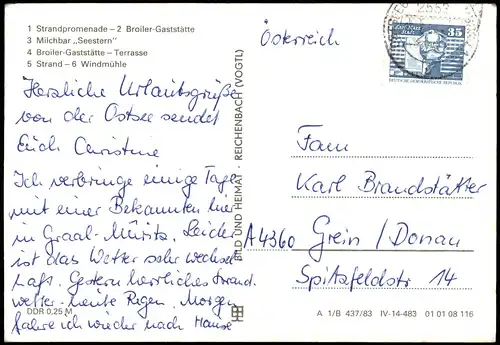 1 Strandpromenade – 2 Broiler-Gaststätte
3 Milchbar „Seestern"
4 Broiler-Gaststätte – Terrasse
5 Strand – 6 Windmühle
Herzliche Urlaubsgrüße
von der Ostsee sendet
Euch Christine
Ich verbringe einige Tage
mit einer Bekannten hier
in Graal-Müritz. Leider
ist das Wetter sehr wechsel
haft. Gestern herrliches Strand-
wetter – heute Regen. Morgen
fahre ich wieder nach Hause
DDR 0,25 M
BILD UND HEIMAT · REICHENBACH (VOGTL)
Österreich
2553
35
DEUTSCHE DEMOKRATISCHE REPUBLIK
Fam
Karl Brandstätter
A 4360 Grein / Donau
Spitzfeldstr 14
A 1/B 437/83 IV-14-483 01 01 08 116